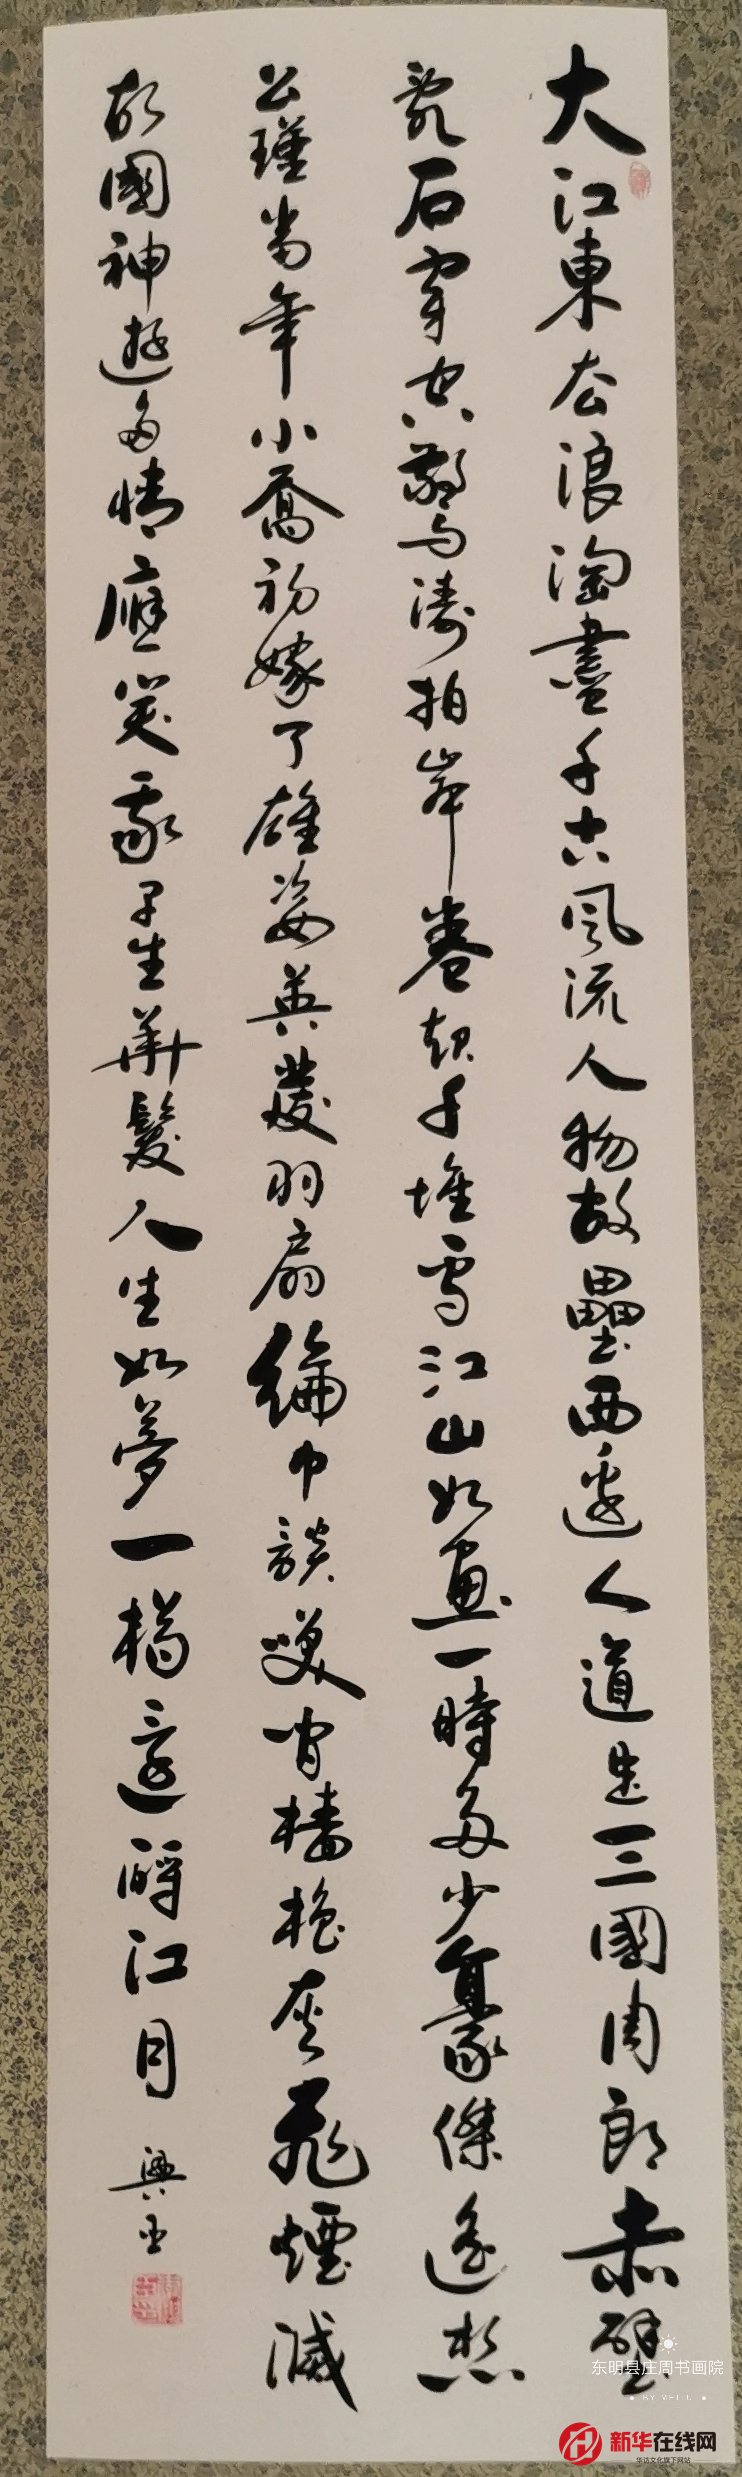 大江東去浪淘盡千古風流人物故壘西邊人道是三國周郎赤壁
亂石穿空驚濤拍岸卷起千堆雪江山如畫一時多少豪傑遙想
公瑾當年小喬初嫁了雄姿英發羽扇綸巾談笑間檣櫓灰飛煙滅
故國神遊多情應笑我早生華髮人生如夢一樽還酹江月
興
东明县庄周书画院
新华在线网
华谊文化旗下网站